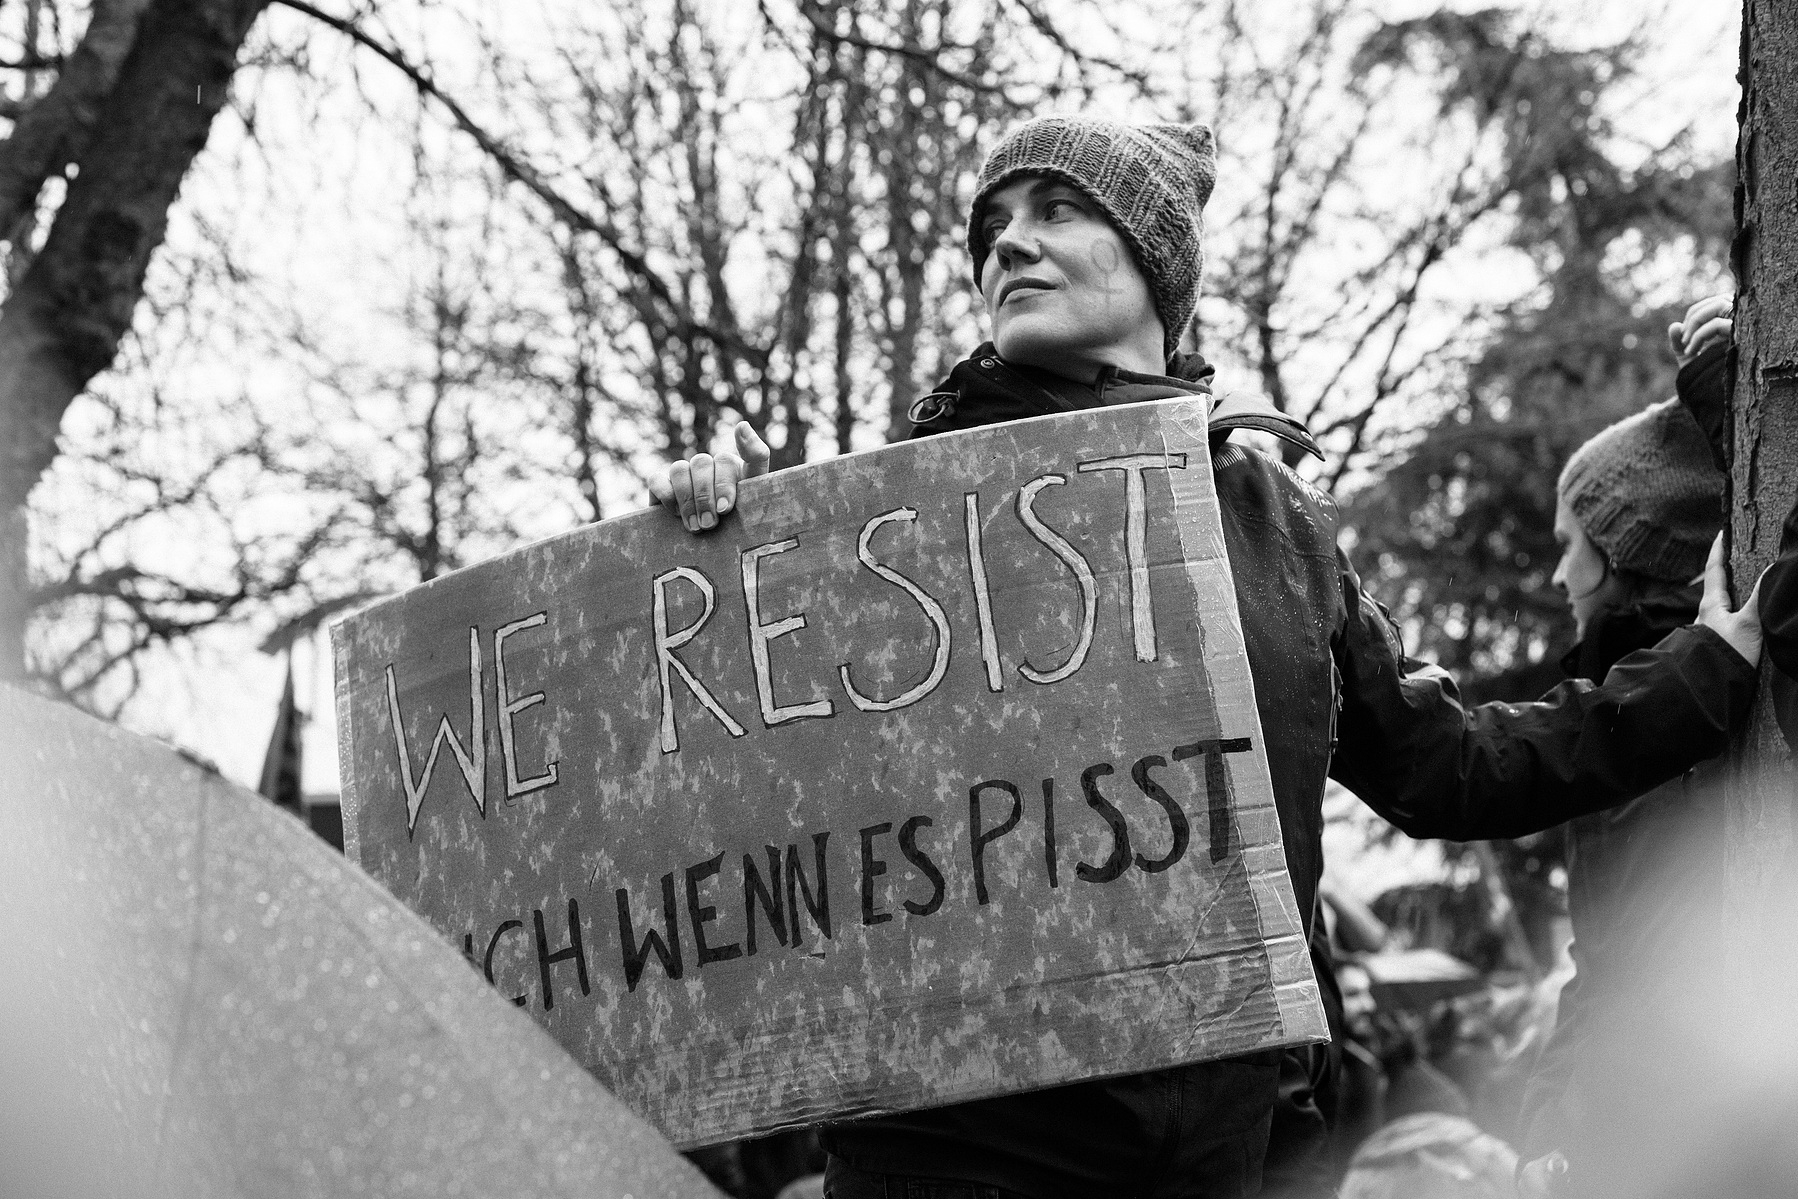 WE RESIST
WENN ES PISST